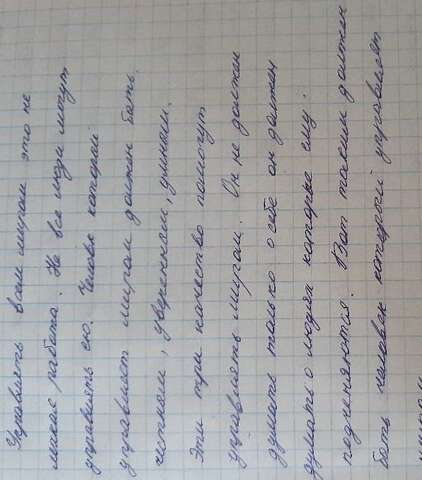 Управлять всем миром это не
легкая работа. Не все люди могут
управлять ею. Человек который
управляет миром должен быть
честным, уверенным, умным.
Эти три качество помогут
управлять миром. Он не должен
думать только о себе он должен
думать о людях которые ему
подченяются. Вот таким должен
быть человек который управляет
миром